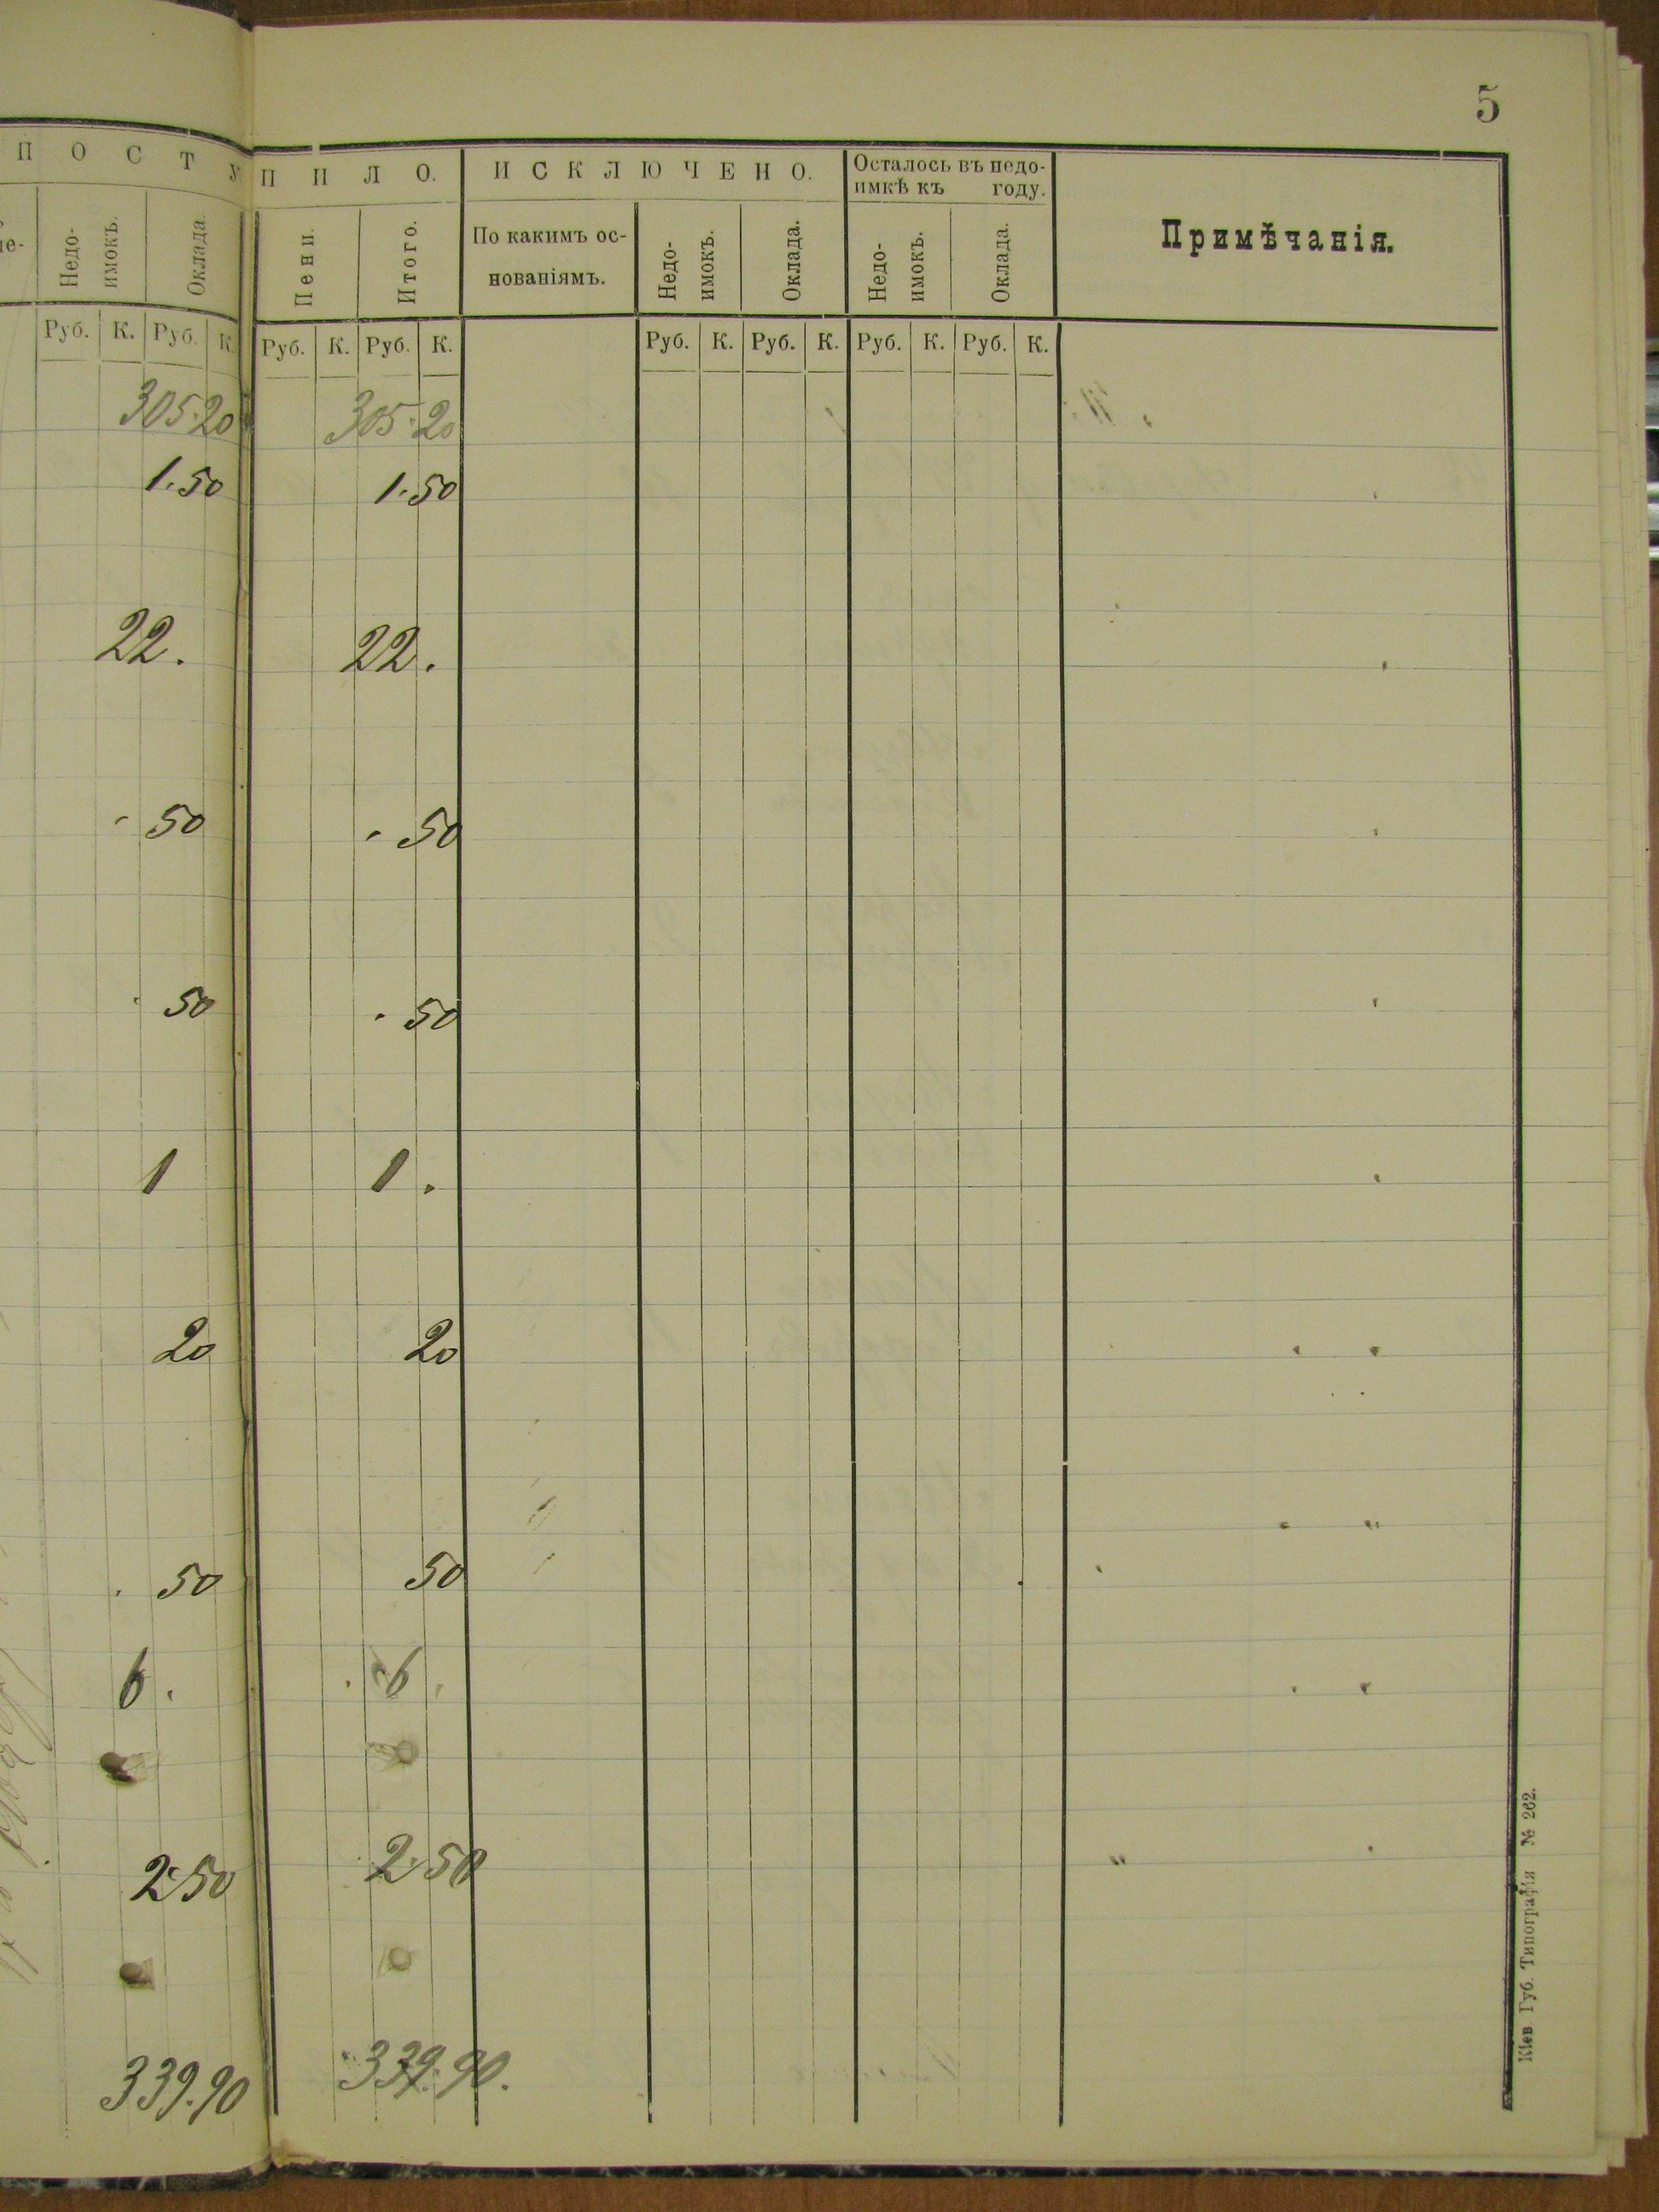 5
П О С Т У П И Л О. И С К Л Ю Ч Е Н О. Осталось въ недо-
имкѣ къ году.
Примѣчанія.
Недо-
имокъ.
Оклада.
Пени.
Итого.
По какимъ ос-
нованіямъ.
Недо-
имокъ.
Оклада.
Недо-
имокъ.
Оклада.
Руб. К. Руб. К. Руб. К. Руб. К. Руб. К. Руб. К. Руб. К. Руб. К.
305.20 305.20
1.50 1.50
22. 22.
50 50
50 50
1 1.
20 20
50 50
6. 6.
2.50 2.50
339.90 339.90.
Кіев Губ. Типографія № 262.